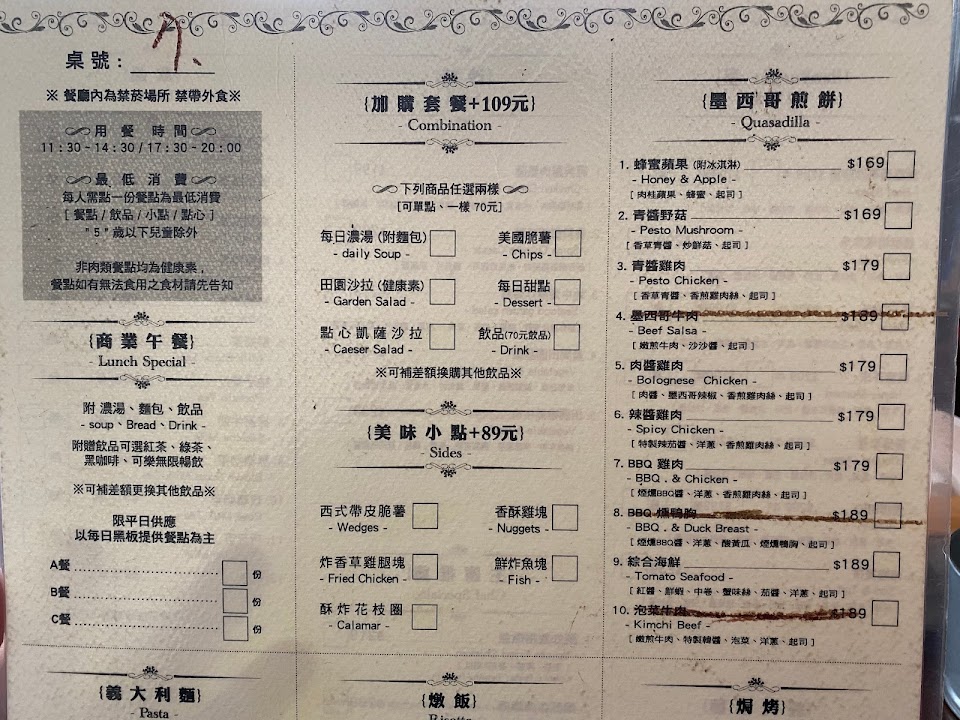 桌號：
※ 餐廳內為禁菸場所 禁帶外食※
用 餐 時 間
11：30 - 14：30 / 17：30 - 20：00
最 低 消 費
每人需點一份餐點為最低消費
[ 餐點 / 飲品 / 小點 / 點心 ]
" 5 " 歲以下兒童除外
非肉類餐點均為健康素，
餐點如有無法食用之食材請先告知
{商 業 午 餐}
- Lunch Special -
附 濃湯、麵包、飲品
- soup、Bread、Drink -
附贈飲品可選紅茶、綠茶、
黑咖啡、可樂無限暢飲
※可補差額更換其他飲品※
限平日供應
以每日黑板提供餐點為主
A餐 份
B餐 份
C餐 份
{義 大 利 麵}
- Pasta -
{加 購 套 餐+109元}
- Combination -
下列商品任選兩樣
[可單點、一樣 70元]
每日濃湯 (附麵包)
- daily Soup -
美國脆薯
- Chips -
田園沙拉 (健康素)
- Garden Salad -
每日甜點
- Dessert -
點心凱薩沙拉
- Caeser Salad -
飲品(70元飲品)
- Drink -
※可補差額換購其他飲品※
{美 味 小 點+89元}
- Sides -
西式帶皮脆薯
- Wedges -
香酥雞塊
- Nuggets -
炸香草雞腿塊
- Fried Chicken -
鮮炸魚塊
- Fish -
酥炸花枝圈
- Calamar -
{燉 飯}
Risotto
{墨 西 哥 煎 餅}
- Quasadilla -
1. 蜂蜜蘋果 (附冰淇淋) $169
- Honey & Apple -
[ 肉桂蘋果、蜂蜜、起司 ]
2. 青醬野菇 $169
- Pesto Mushroom -
[ 香草青醬、炒鮮菇、起司 ]
3. 青醬雞肉 $179
- Pesto Chicken -
[ 香草青醬、香煎雞肉絲、起司 ]
4. 墨西哥牛肉 $189
- Beef Salsa -
[ 嫩煎牛肉、沙沙醬、起司 ]
5. 肉醬雞肉 $179
- Bolognese Chicken -
[ 肉醬、墨西哥辣椒、香煎雞肉絲、起司 ]
6. 辣醬雞肉 $179
- Spicy Chicken -
[ 特製辣茄醬、洋蔥、香煎雞肉絲、起司 ]
7. BBQ 雞肉 $179
- BBQ . & Chicken -
[ 煙燻BBQ醬、洋蔥、香煎雞肉絲、起司 ]
8. BBQ 燻鴨胸 $189
- BBQ . & Duck Breast -
[ 煙燻BBQ醬、洋蔥、酸黃瓜、煙燻鴨胸、起司 ]
9. 綜合海鮮 $189
- Tomato Seafood -
[ 紅醬、鮮蝦、中卷、蟹味絲、茄醬、洋蔥、起司 ]
10. 泡菜牛肉 $189
- Kimchi Beef -
[ 嫩煎牛肉、特製韓醬、泡菜、洋蔥、起司 ]
{焗 烤}